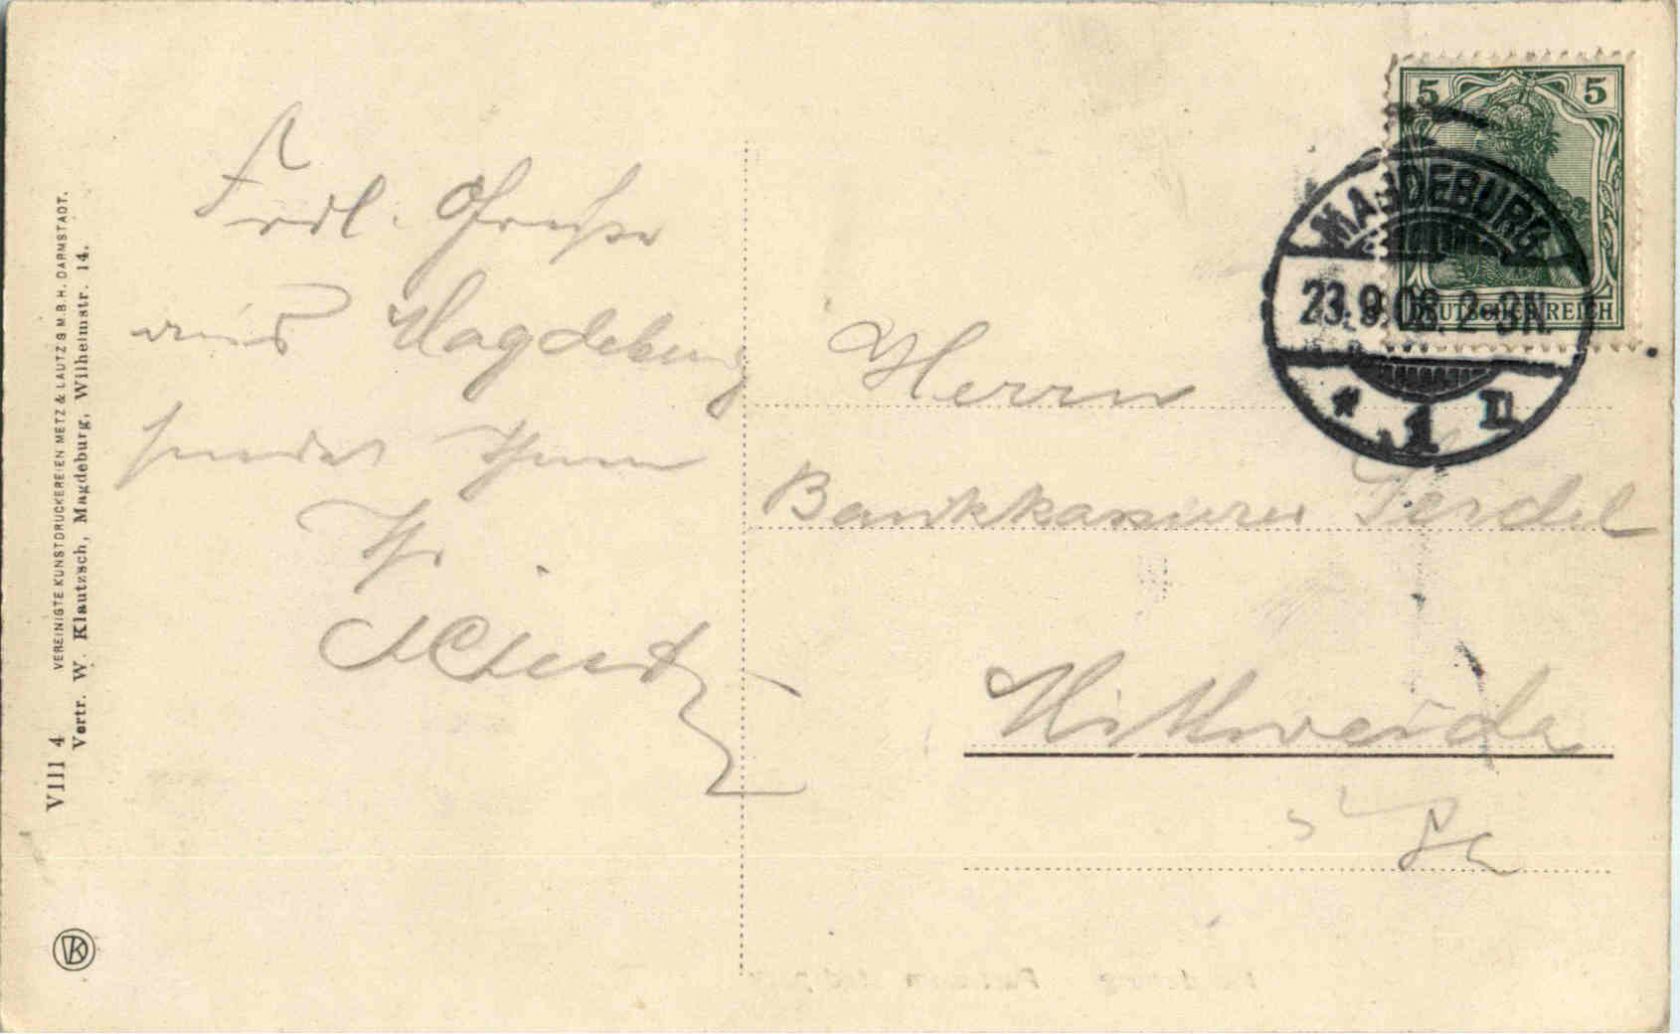 VIII 4
VEREINIGTE KUNSTDRUCKEREIEN METZ & LAUTZ G.M.B.H. DARMSTADT.
Vertr. W. Klautzsch, Magdeburg, Wilhelmstr. 14.
Frdl. Grüße
aus Magdeburg
sendet Ihnen
Ihr
5 5
DEUTSCHES REICH
MAGDEBURG
23.9.08. 2-3N.
* 1 II
Herrn
Bankkassierer
Mittweida
i/Sa
VK